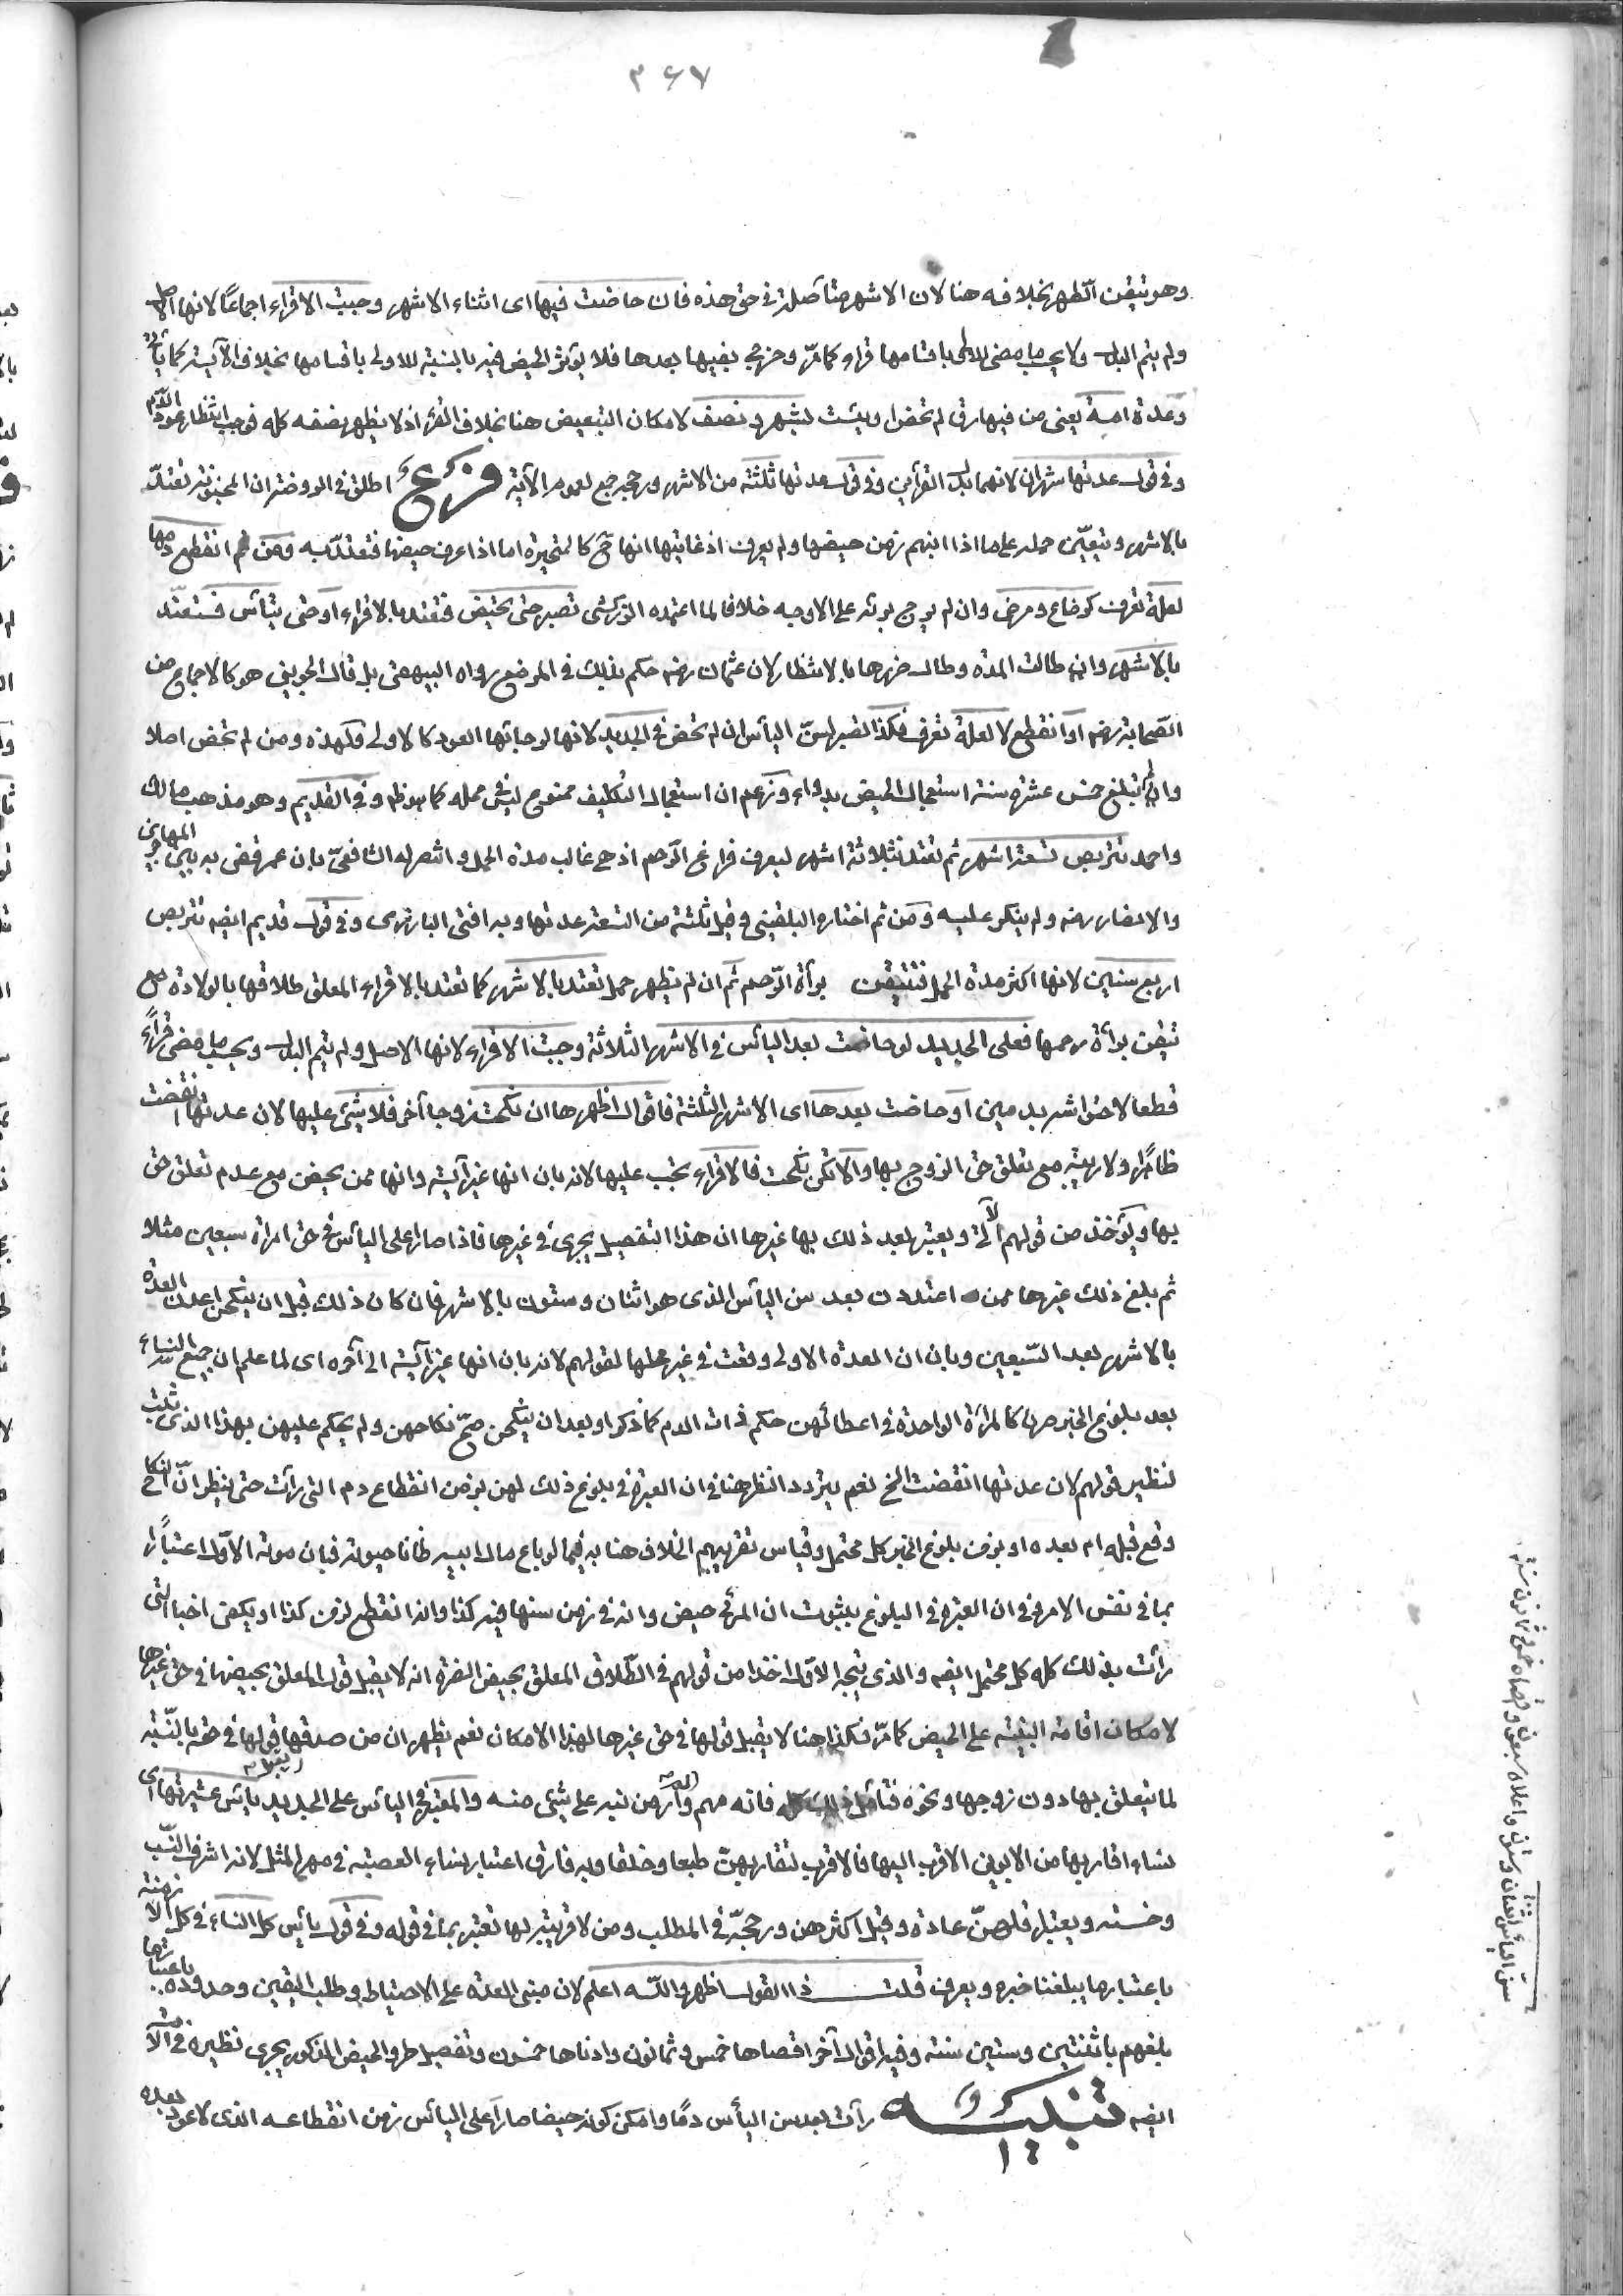 ٣٦٧
وهو تيقن الطهر بخلافه هنا لان الاشهر متأصلة في حق هذه فان حاضت فيها اى اثناء الاشهر وجبت الاقراء اجماعًا لانها الاصل
ولم يتم البدل ولا يحسب ما مضى للطهر باقسامها قراء كما مرّ وخرج بفيها بعدها فلا يؤثر الحيض فيه بالنسبة للاولى باقسامها بخلاف الآيسة كما يأتى
وعدة امة يعنى من فيها رق لم تحض او يئست بشهر ونصف لامكان التبعيض هنا بخلاف القرء اذ لا يظهر نصفه الا بظهور كله فوجب انتظار عود الدم
وفى قول عدتها شهران لانهما بدل القرأين وفى قول عدتها ثلثة من الاشهر ورجحه جمع لعموم الآية فرع اطلق فى الروضة ان المجنونة تعتدّ
بالاشهر ويتعيّن حمله على ما اذا انبهم زمن حيضها ولم يعرف اذ غايتها انها ح كالمتحيرة اما اذا عرف حيضها فتعتدّ به ومن انقطع دمها
لعلة تعرف كرضاع ومرض وان لم يرج برئه على الاوجه خلافا لما اعتمده الزركشى تصبر حتى تحيض فتعتد بالاقراء او حتى تيأس فتعتد
بالاشهر وان طالت المدة وطال ضررها بالانتظار لان عثمان رضه حكم بذلك فى المرضع رواه البيهقى بل قال الجوينى هو كالاجماع من
الصحابة رضه او انقطع لا لعلة تعرف فكذا تصبر لسنّ اليأس ان لم تحض فى الجديد لانها لرجائها العود كالاولى وكهذه ومن لم تحض اصلا
وان لم تبلغ خمس عشرة سنة استعجال الحيض بدواء وزعم ان استعجال التكليف ممنوع ليس فى محله كما هو ظ وفى القديم وهو مذهب مالك
واحمد تتربص تسعة اشهر ثم تعتد بثلاثة اشهر ليعرف فراغ الرحم اذ هى غالب مدة الحمل وانتصر له الشافعىّ بان عمر قضى به بين المهاجرين
والانصار رضه ولم ينكر عليه ومن ثم اختاره البلقينى وقيل ثلثة من التسعة عدتها وبه افتى البارزى وفى قول قديم ايضه تتربص
اربع سنين لانها اكثر مدة الحمل فتتيقن برأة الرّحم ثم ان لم يظهر حمل تعتد بالاشهر كما تعتد بالاقراء المعلق طلاقها بالولادة مع
تيقن برأة رحمها فعلى الجديد لو حاضت بعد اليأس فى الاشهر الثلاثة وجبت الاقراء لانها الاصل ولم يتم البدل ويحسب ما مضى قرأً
قطعا لاحتواشه بدمين او حاضت بعدها اى الاشهر الثلثة فاقوال اظهرها ان نكحت زوجا آخر فلا شئ عليها لان عدتها انقضت
ظاهرًا ولا ريبة مع تعلق حق الزوج بها والا تكن نكحت فالاقراء تجب عليها لانه بان انها غير آيسة وانها ممن يحيض مع عدم تعلق حق
بها ويؤخذ من قولهم الآتى ويعتبر بعد ذلك بها غيرها ان هذا التفصيل يجرى فى غيرها فاذا صار اعلى اليأس فى حق امرأة سبعين مثلا
ثم بلغ ذلك غيرها ممن اعتددن بعد سن اليأس الذى هو اثنان وستون بالاشهر فان كان ذلك قبل ان ينكحن اعدن العدة
بالاشهر بعد السّبعين وبان ان العدة الاولى وقعت فى غير محلها لقولهم لانه بان انها غير آيسة الى آخره اى لما علم ان جميع النساء
بعد بلوغ الخبر صرن كالمرأة الواحدة فى اعطائهن حكم ذات الدم كما ذكر او بعد ان ينكحن صحّ نكاحهن ولم يحكم عليهن بهذا الذى ثبت
لنظير قولهم لان عدتها انقضت الخ نعم يتردد النظر هنا فى ان العبرة فى بلوغ ذلك لهن بزمن انقطاع دم التى رأت حتى ينظر انّ النكاح
وقع قبله ام بعده او بزمن بلوغ الخبر كل محتمل وقياس تفريعهم الخلاف هنا به فيما لو باع مال ابيه ظانا حيوته فبان موته الاوّل اعتبارًا
بما فى نفس الامر وفى ان العبرة فى البلوغ بثبوت ان المرئى حيض وانه فى زمن سنها فيه كذا وانه انقطع لزمن كذا او يكفى اخبار التى
رأت بذلك كله كل محتمل ايضه والذى يتجه الاوّل اخذا من قولهم فى الطّلاق المعلق بحيض الضرة انه لا يقبل قول المعلق بحيضها فى حق غيرها
لامكان اقامة البيّنة على الحيض كما مرّ فكذا هنا لا يقبل قولها فى حق غيرها لهذا الامكان نعم يظهر ان من صدقها قبل قولها فى حقه بالنّسبة
لما يتعلق بها دون زوجها ونحوه فتأمل ذلك كله فانه مهم ولم أر من نبه على شئ منه والمعتبر فى اليأس على الجديد يأس عشيرتها اى
نساء اقاربها من الابوين الاقرب اليها فالاقرب لتقاربهنّ طبعا وخلقا وبه فارق اعتبار نساء العصبة فى مهر المثل لانه لشرف النّسب
وخسته ويعتبر اقلهنّ عادة وقيل اكثرهن ورجحه فى المطلب ومن لا قريبة لها تعتبر بما فى قوله وفى قول يأس كل النساء فى كل الازمنة
باعتبار ما يبلغنا خبره ويعرف قلت ذا القول اظهر والله اعلم لان مبنى العدة على الاحتياط وطلب اليقين وحددوه باعتبار ما
بلغهم باثنتين وستين سنة وفيه اقوال آخر اقصاها خمس وثمانون وادناها خمسون وتفصيل طرو الحيض المذكور يجرى نظيره فى الامة
ايضه تنبيه رأت بعد سن اليأس دمًا وامكن كونه حيضا صار اعلى اليأس زمن انقطاعه الذى لا عود بعده
سنّ اليأس اثنان وستون واعلاه سبعون واقصاه خمس وثمانون سنة